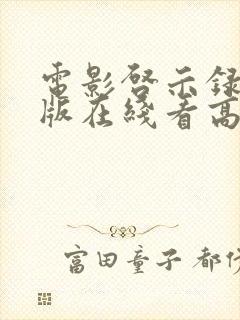 電影啓示録
版在綫看高
富田童子 都